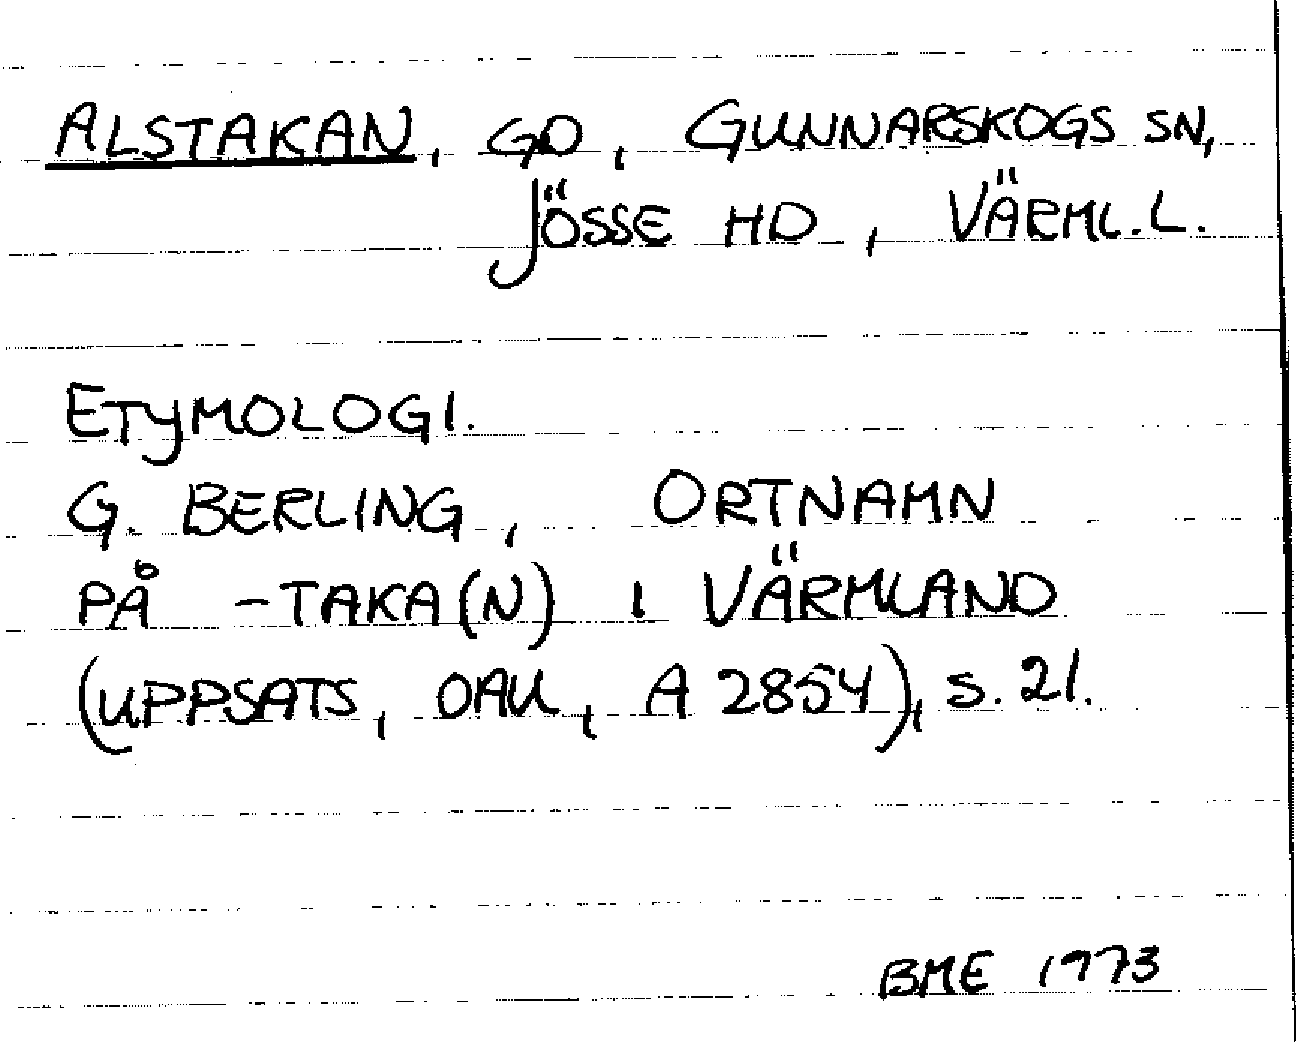 ALSTAKAN, GD, GUNNARSKOGS SN,
JÖSSE HD, VÄRML.L.
ETYMOLOGI.
G. BERLING, ORTNAMN
PÅ -TAKA(N) I VÄRMLAND
(UPPSATS, OAU, A 2854), s. 21.
BME 1973